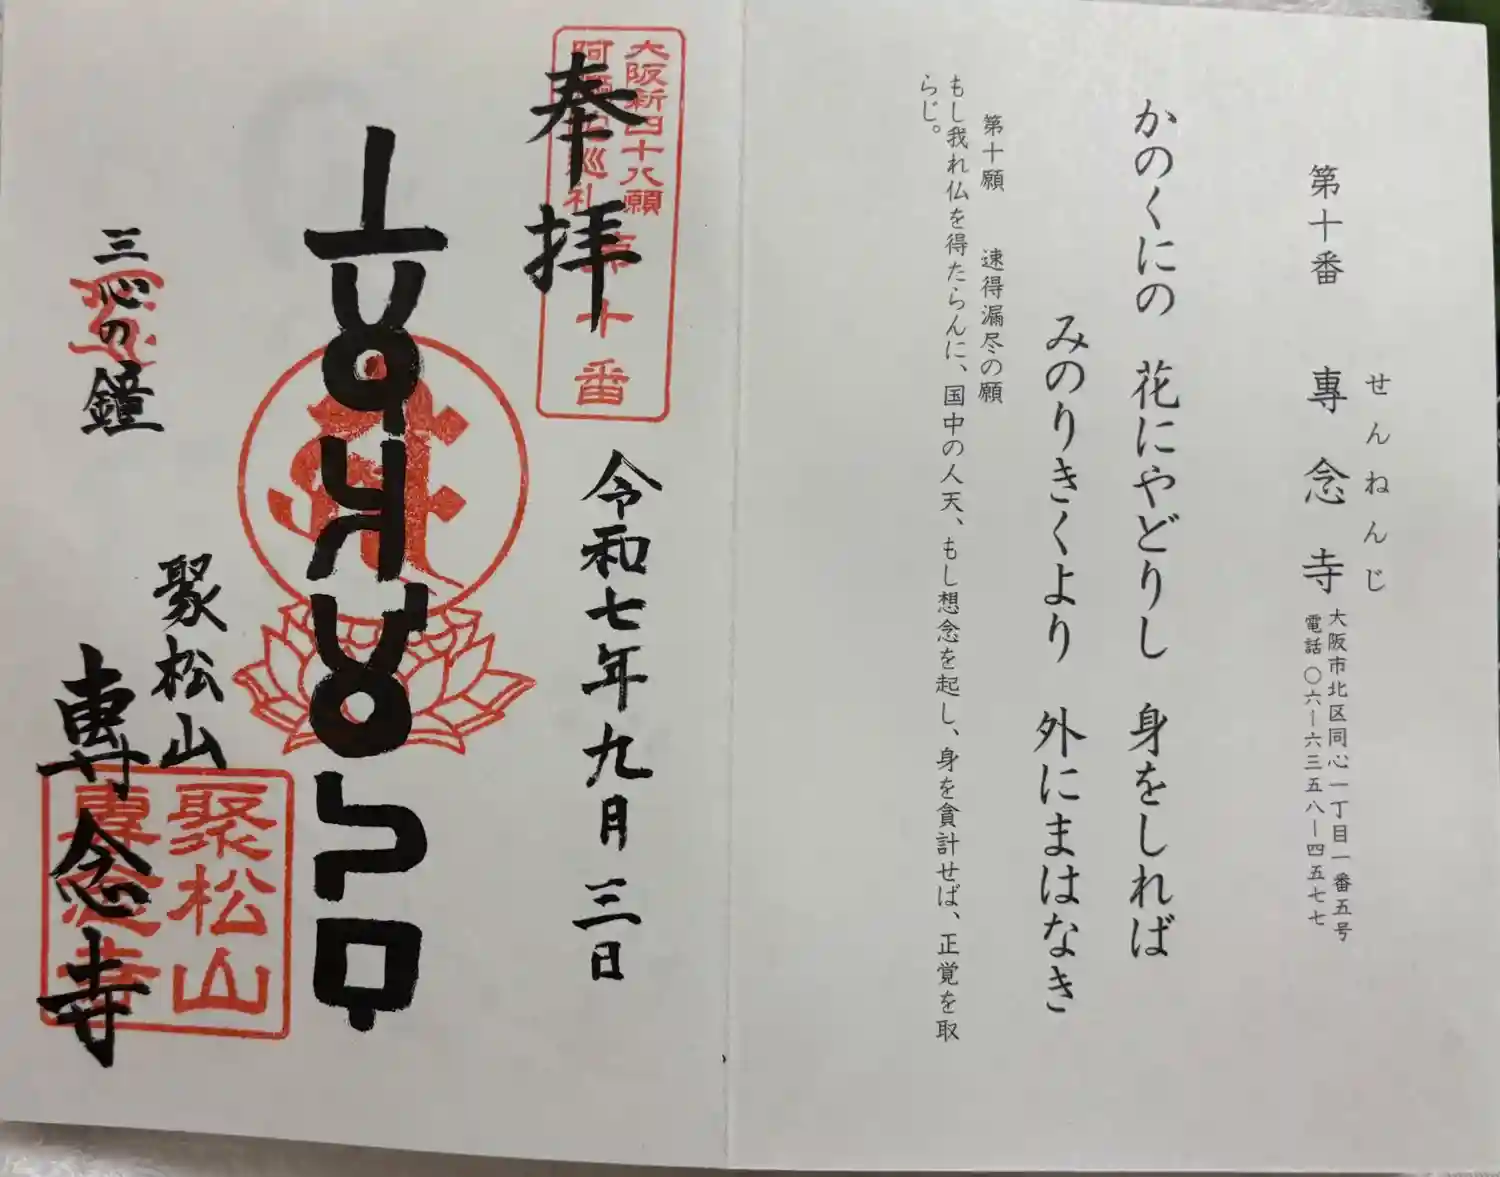 第十番　專念寺
せんねんじ
大阪市北区同心一丁目一番五号
電話〇六ー六三五八ー四五七七
かのくにの　花にやどりし　身をしれば
みのりきくより　外にまはなき
第十願　速得漏尽の願
もし我れ仏を得たらんに、国中の人天、もし想念を起し、身を貪計せば、正覚を取
らじ。
大阪新四十八願
阿弥陀巡礼
第十番
奉拝
令和七年九月三日
三心の鐘
聚松山
專念寺
聚松山
專念寺